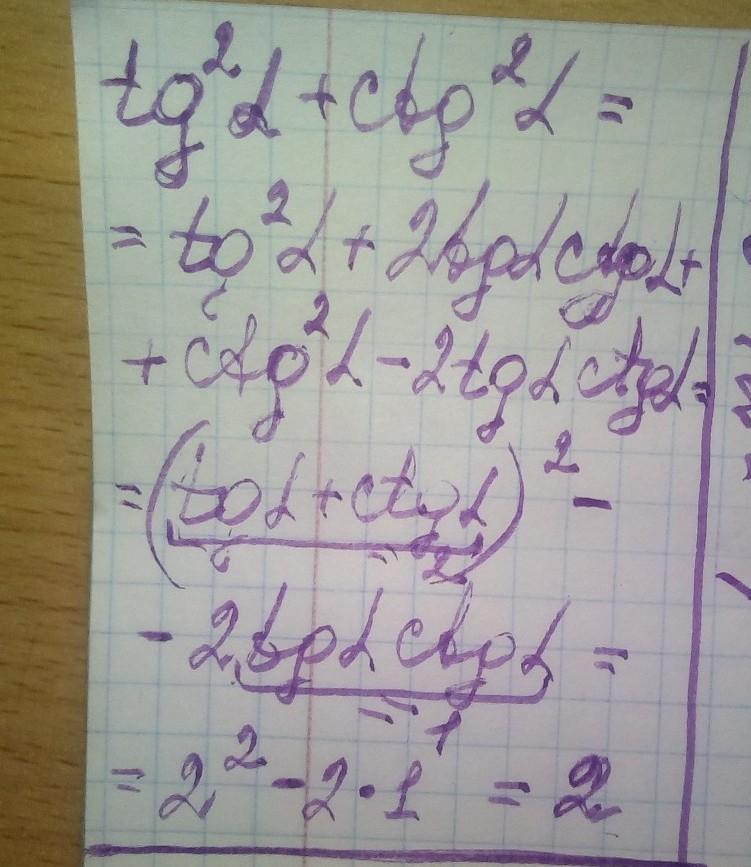 tg²α + ctg²α =
= tg²α + 2tgα ctgα +
+ ctg²α - 2tgα ctgα =
= (tgα + ctgα)² -
= 2
- 2tgα ctgα =
= 1
= 2² - 2·1 = 2